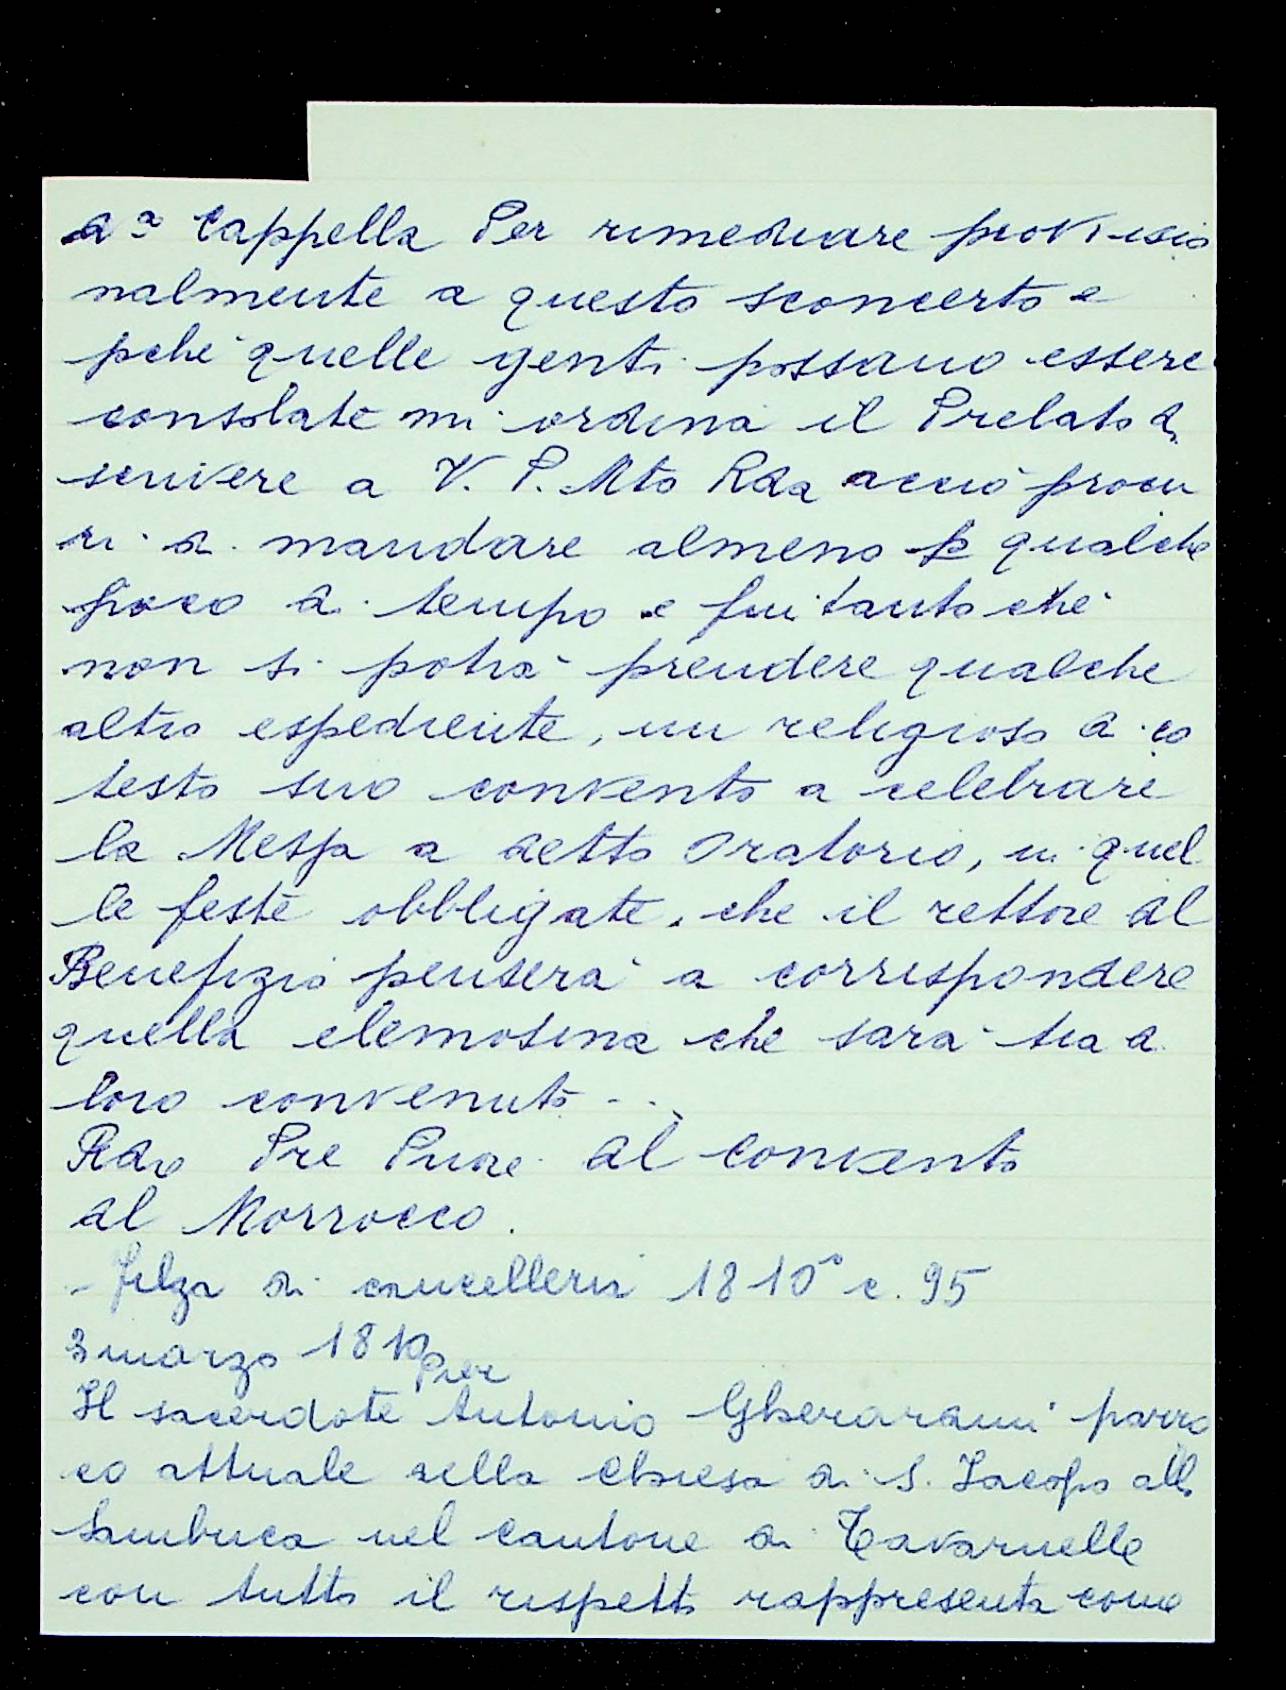 da Cappella Per rimediare provvisio
nalmente a questo sconcerto e
pche quelle genti possano essere
consolate mi ordina il Prelato di
scrivere a V. P. Mto Rda acciò procu
ri di mandare almeno p qualche
poco di tempo e fin tanto che
non si potrà prendere qualche
altro espediente, un religioso di co
testo suo convento a celebrare
la Messa a detto Oratorio, in quel
le feste obbligate, che il rettore del
Benefizio penserà a corrispondere
quella elemosina che sarà tra di
loro convenuto ...
Rdo Pre Priore del convento
del Morrocco.
- Filza di cancelleria 1810 c. 95
3 marzo 1810
Il sacerdote Antonio Gherardini parro
co attuale della Chiesa di S. Jacopo alla
Sambuca nel cantone di Tavarnelle
con tutto il rispetto rappresenta come